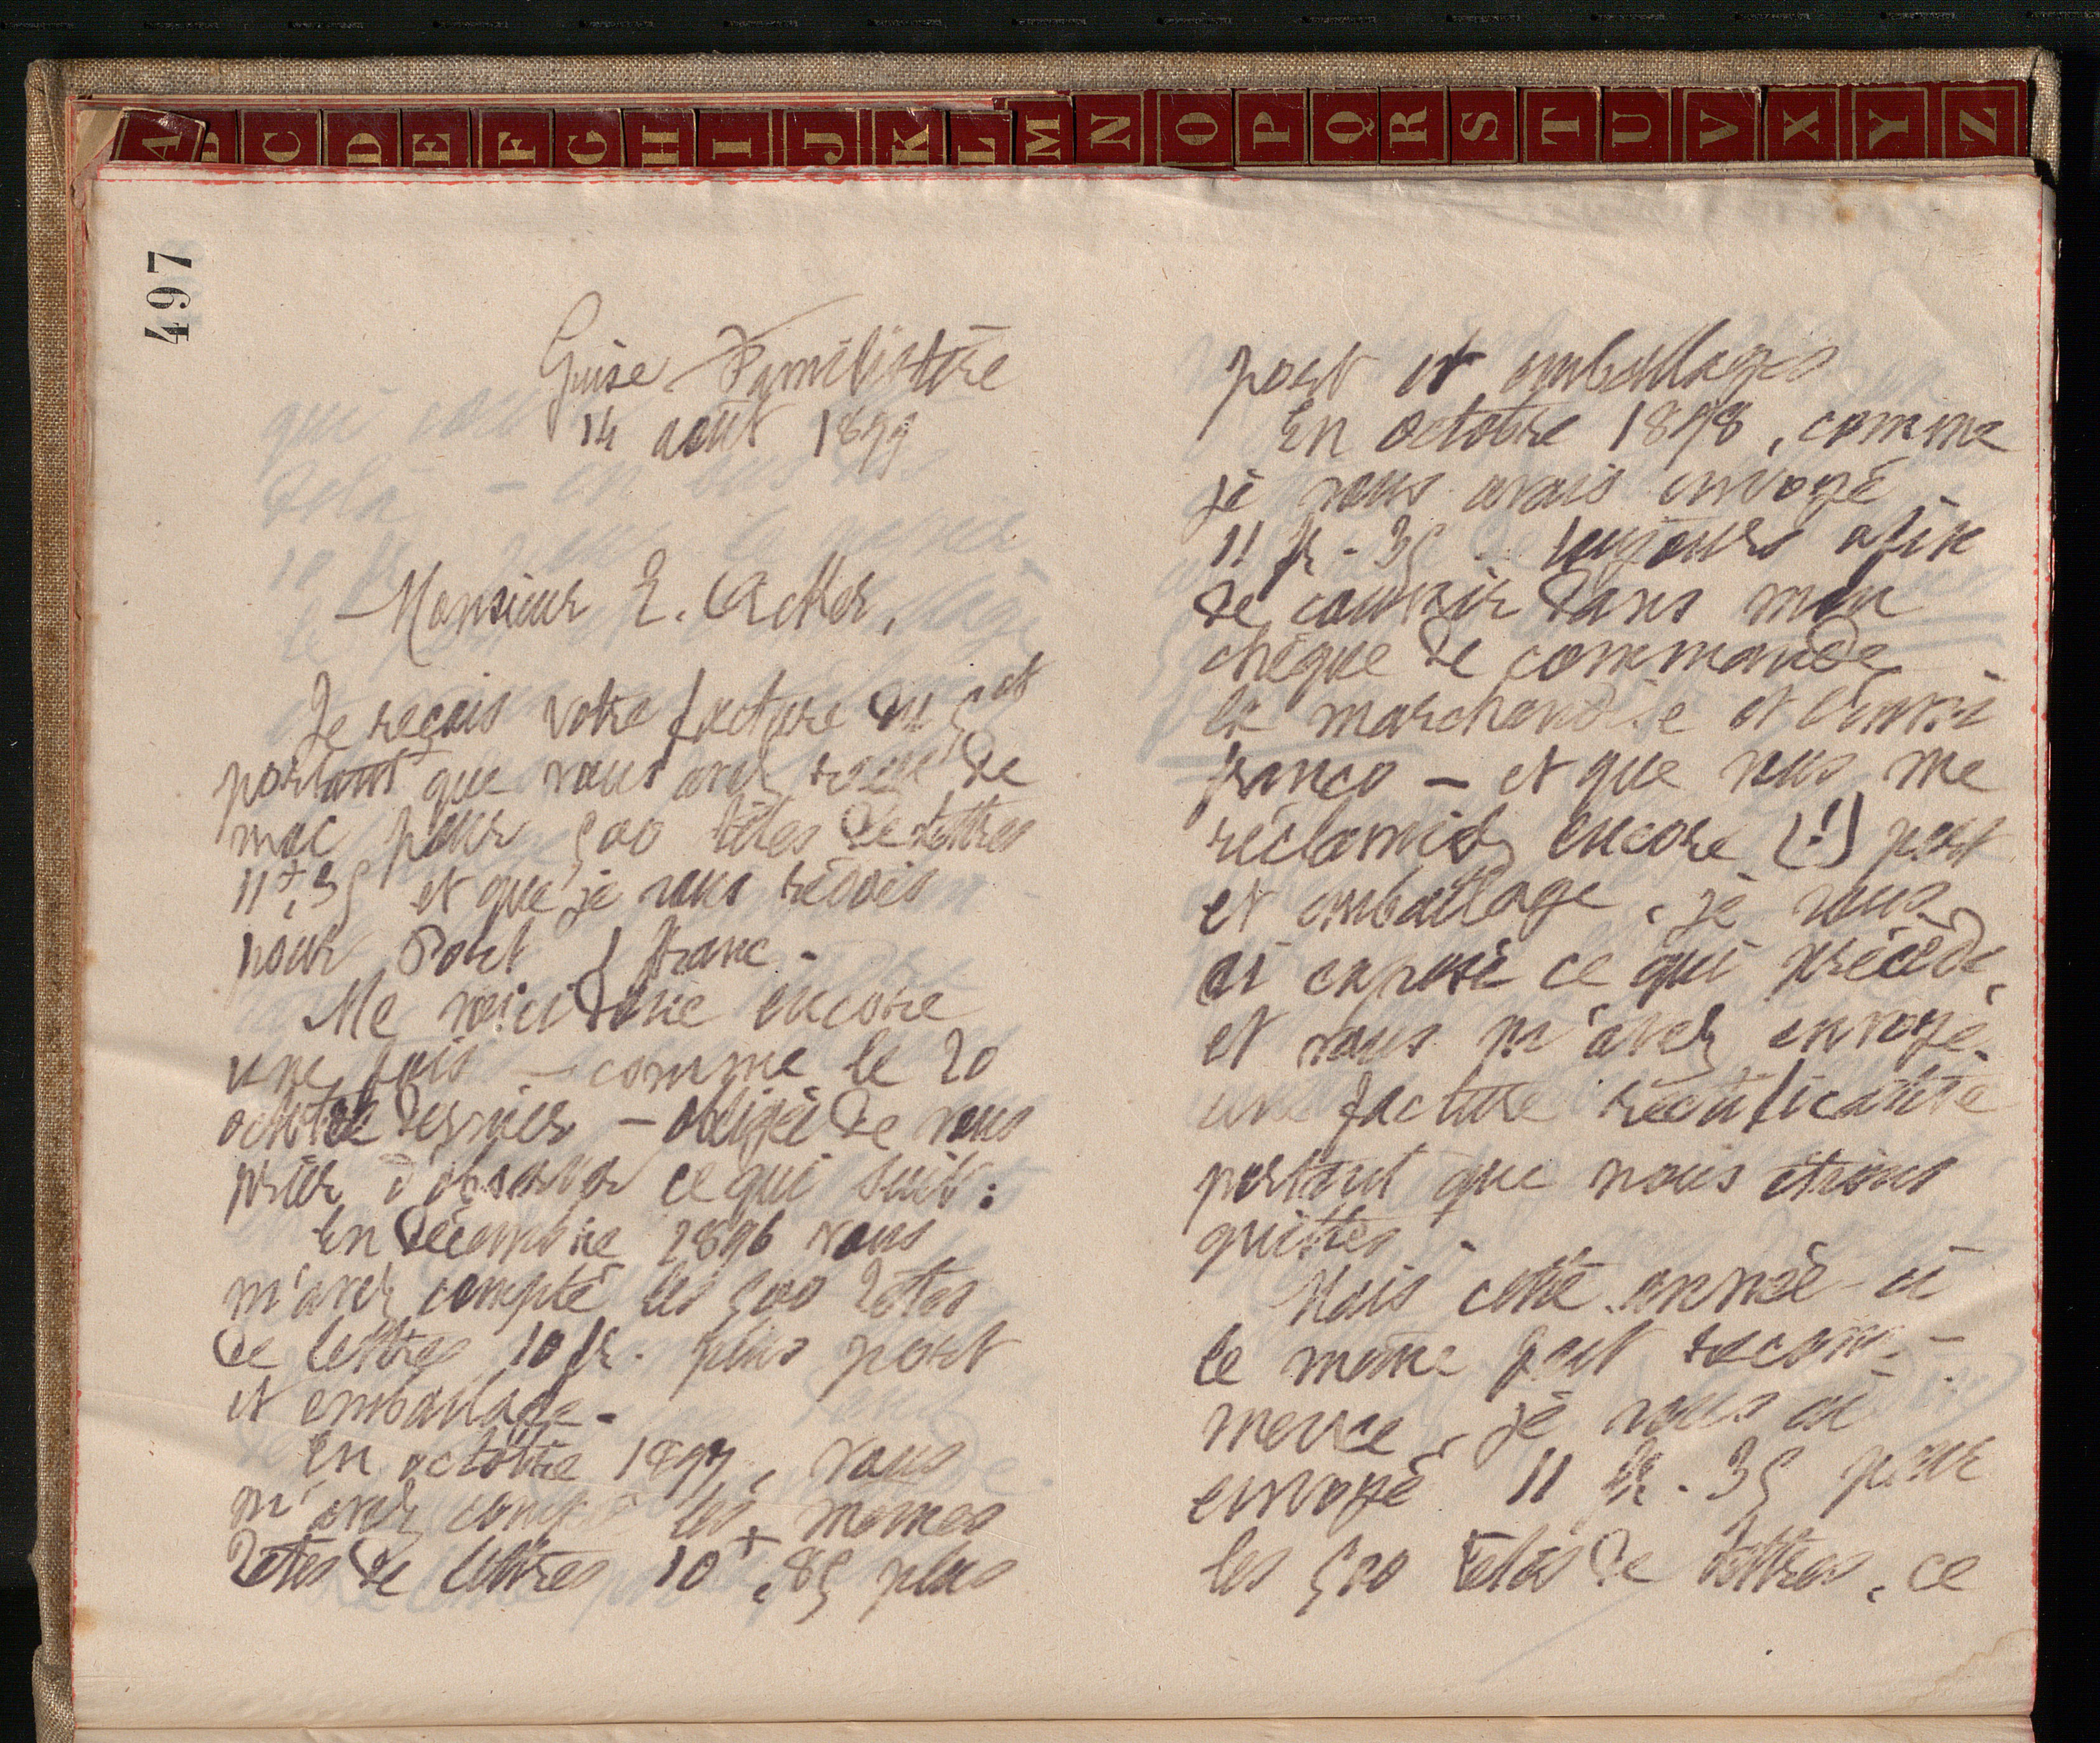 A B C D E F G H I J K L M N O P Q R S T U V X Y Z
497
Guise Familistère
14 août 1899
Monsieur E.
Je reçois votre facture du 5 ct
portant que vous avez reçu de
moi pour 500 têtes de lettres
11f,35 et que je vous redois
pour Port 1 franc.
Me voici donc encore
une fois – comme le 20
octobre dernier – obligée de vous
prier d'observer ce qui suit :
En décembre 1896 vous
m'avez compté les 500 têtes
de lettres 10 fr. plus port
et emballage.
En octobre 1897, vous
m'avez compté les mêmes
têtes de lettres 10f,85 plus
port et emballages
En octobre 1898, comme
je vous avais envoyé
11 fr. 35 toujours afin
de couvrir dans mon
chèque de commande
la marchandise et l'envoi
franco – et que vous me
réclamiez encore (!) port
et emballage, je vous
ai exposé ce qui précède,
et vous m'avez envoyé
une facture rectificative
portant que nous étions
quittes.
Mais cette année-ci
le même fait recom-
mence, je vous ai
envoyé 11 fr. 35 pour
les 500 têtes de lettres, ce